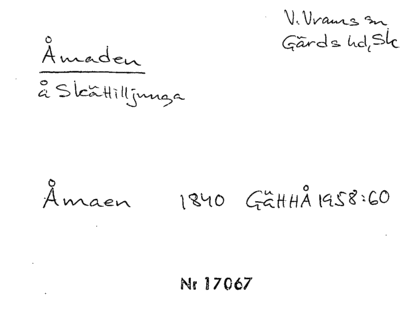 Åmaden
V. Vrams sn
Gärds hd, Sk
å Skättilljunga
Åmaen 1840 GäHHÅ 1958:60
Nr 17067